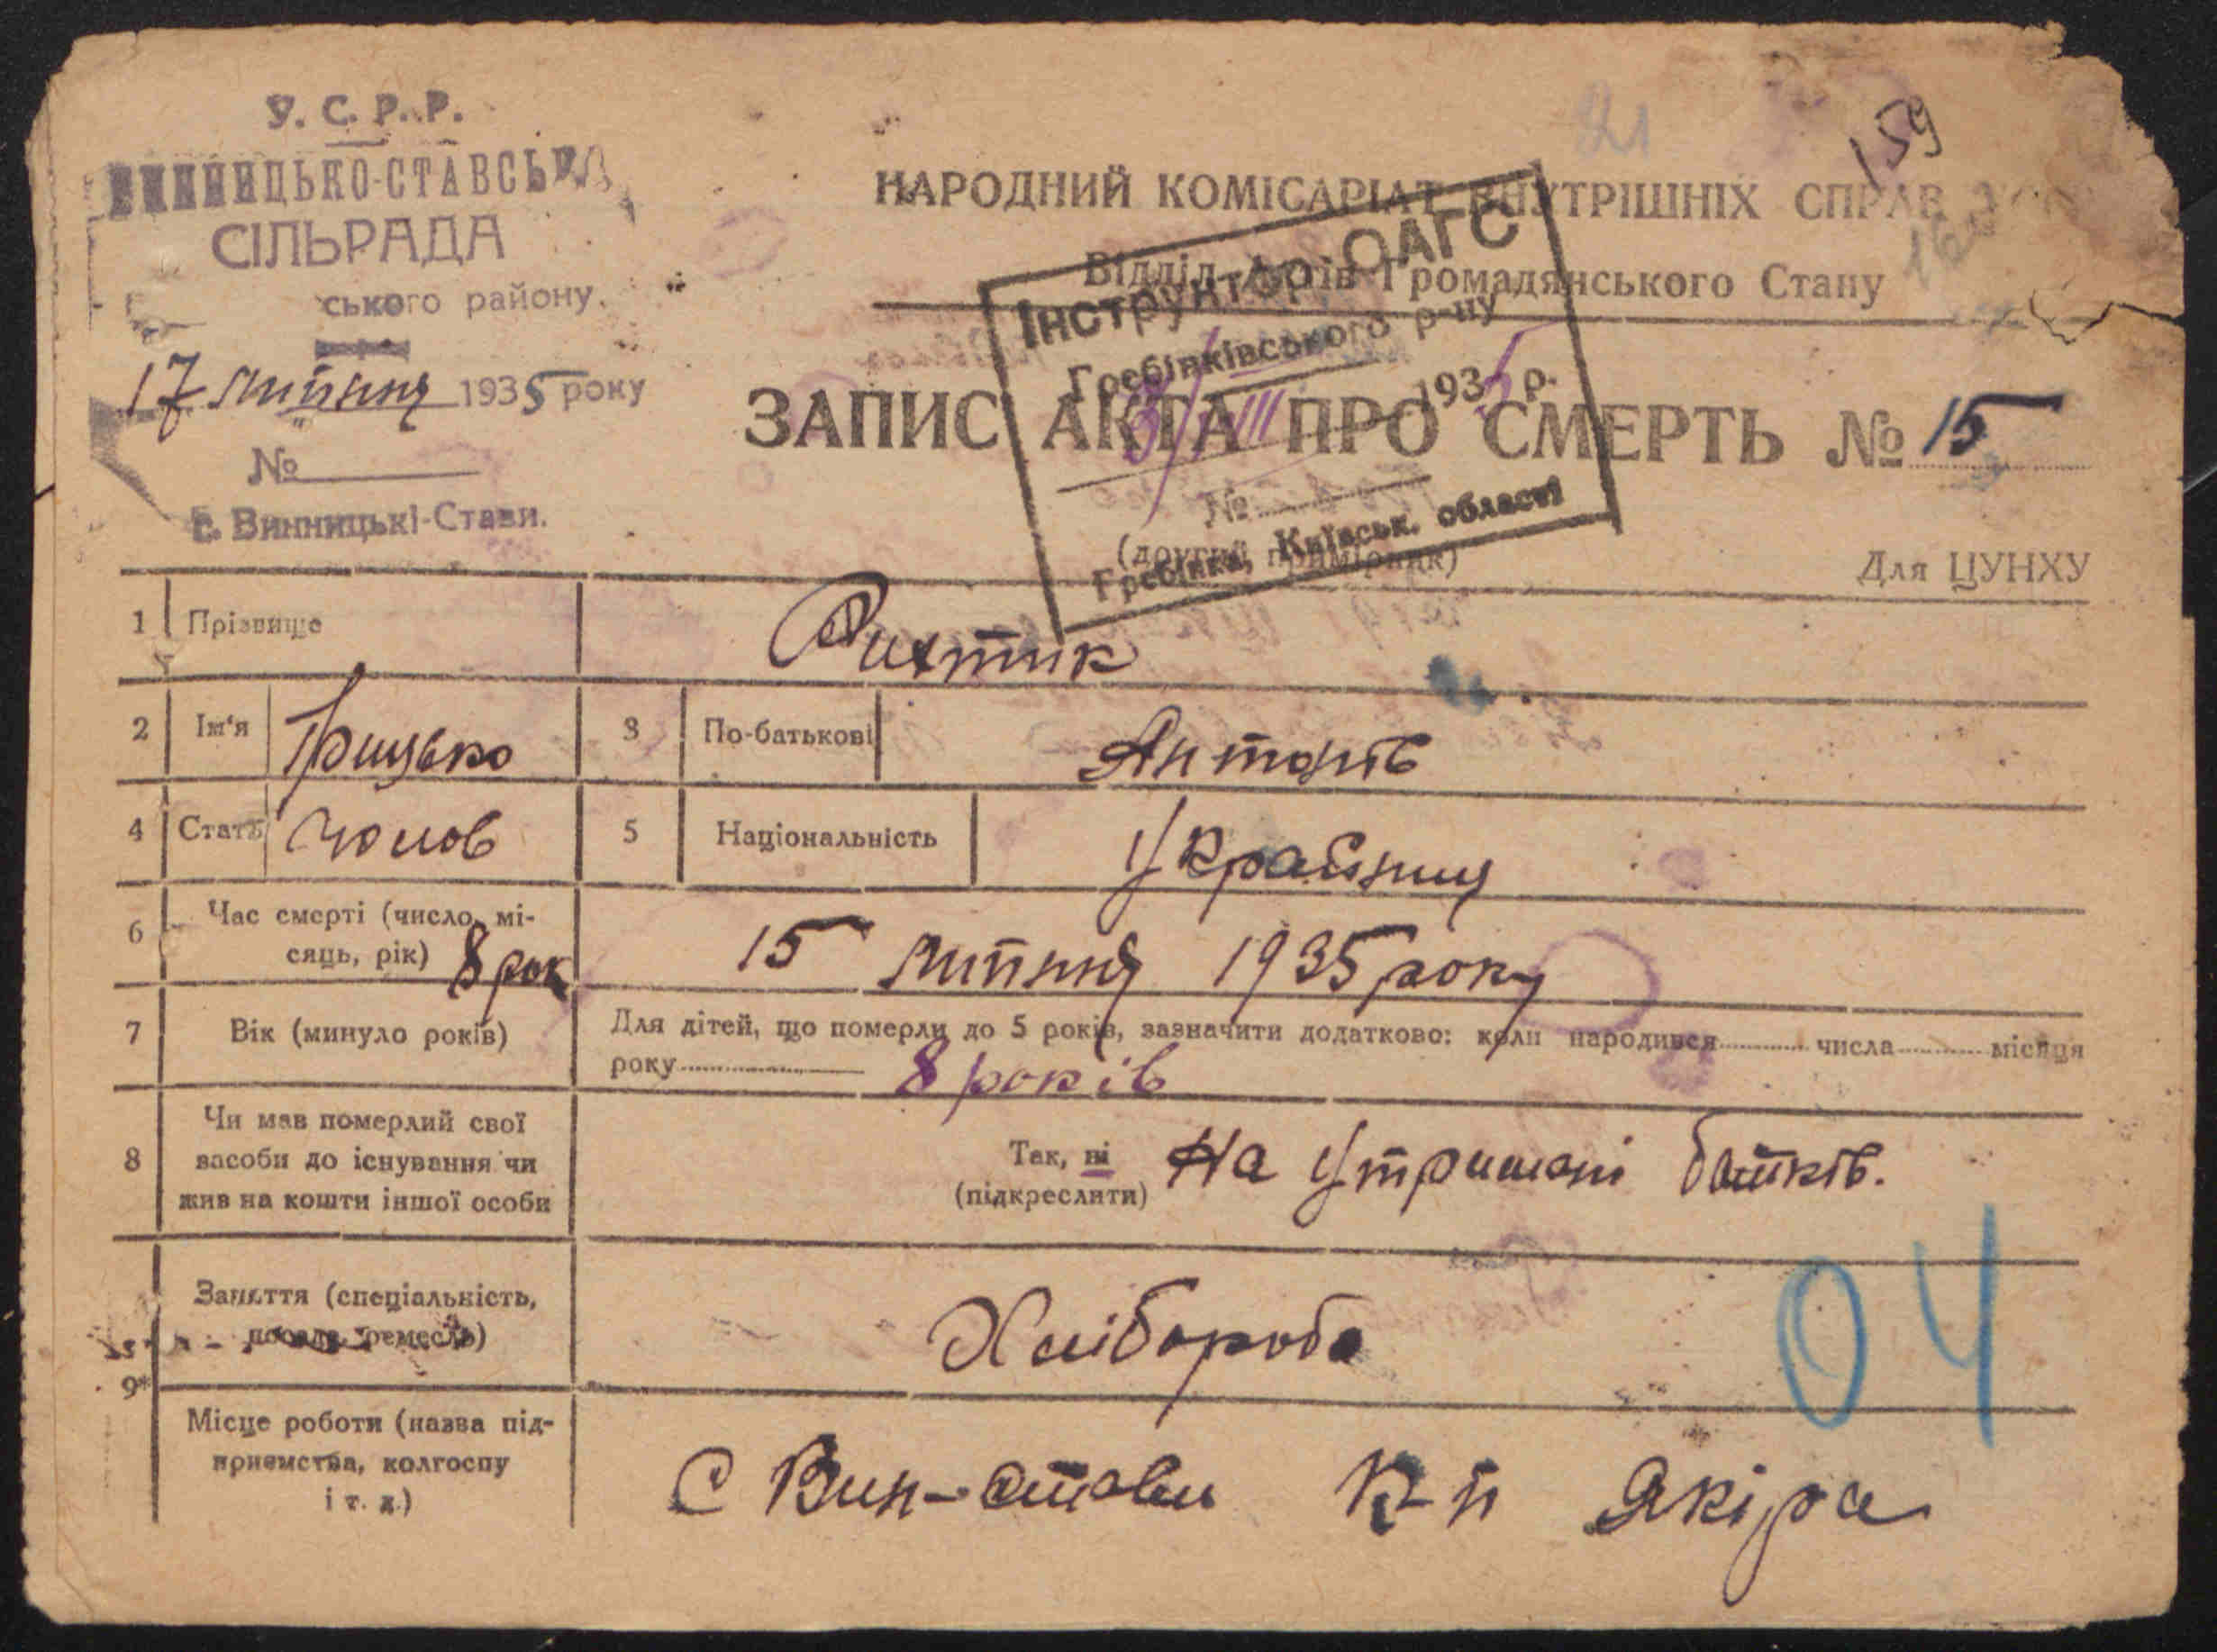 У. С. Р. Р.
ВИННИЦЬКО-СТАВСЬКА
СІЛЬРАДА
ського району.
17 липня 1935 року
№
с. Винницькі-Стави.
21
159
НАРОДНИЙ КОМІСАРІАТ ВНУТРІШНІХ СПРАВ
Відділ Актів Громадянського Стану
Інструктор ОАГС
Гребінківського р-ну
3/VIII 1935 р.
№
Гребінка, Київськ. області
ЗАПИС АКТА ПРО СМЕРТЬ № 15
(другий примірник)
Для ЦУНХУ
1 Прізвище
2 Ім'я Грицько 3 По-батькові Антонів
4 Стать Чолов 5 Національність Українец
6 Час смерті (число, мі-
сяць, рік) 8 рок 15 липня 1935 року
7 Вік (минуло років) Для дітей, що померли до 5 років, зазначити додатково: коли народився числа місяця
року 8 років
8 Чи мав померлий свої
засоби до існування чи
жив на кошти іншої особи
Так, ні
(підкреслити)
На утримані батьків.
Заняття (спеціальність,
посада, ремесло)
Хлібороба
04
9*
Місце роботи (назва під-
приємства, колгоспу
і т. д.)
С Вин-стави к-п Якіра